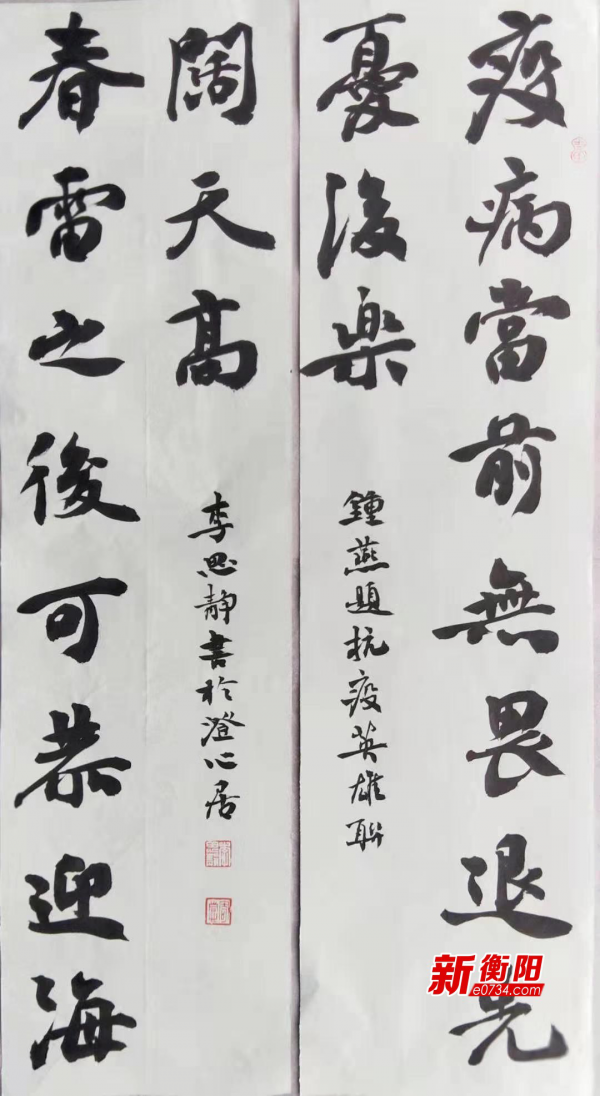 疫病當前無畏退先
憂後楽
鍾燕題抗疫英雄聯
春雷之後可恭迎海
闊天高
李思静書於澄心居
新衡阳
e0734.com